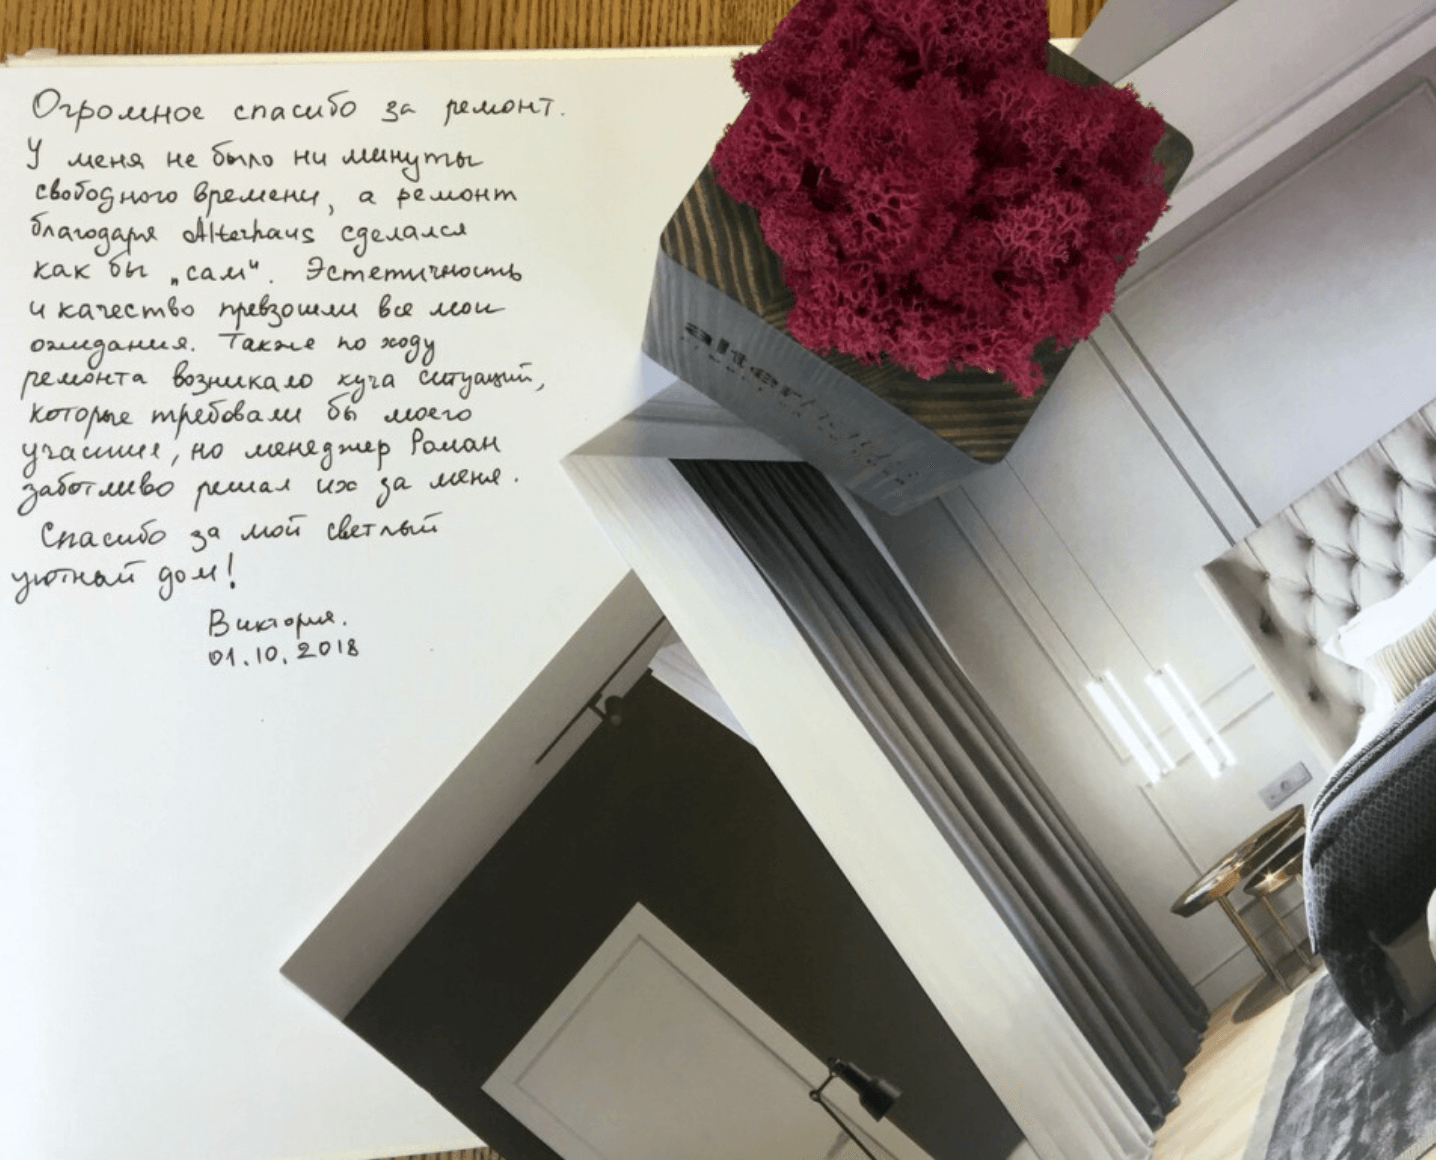 Огромное спасибо за ремонт.
У меня не было ни минуты
свободного времени, а ремонт
благодаря Alterhaus сделался
как бы „сам“. Эстетичность
и качество превзошли все мои
ожидания. Также по ходу
ремонта возникало куча ситуаций,
которые требовали бы моего
участие, но менеджер Роман
заботливо решал их за меня.
Спасибо за мой светлый
уютный дом!
Виктория.
01.10.2018
alterhaus